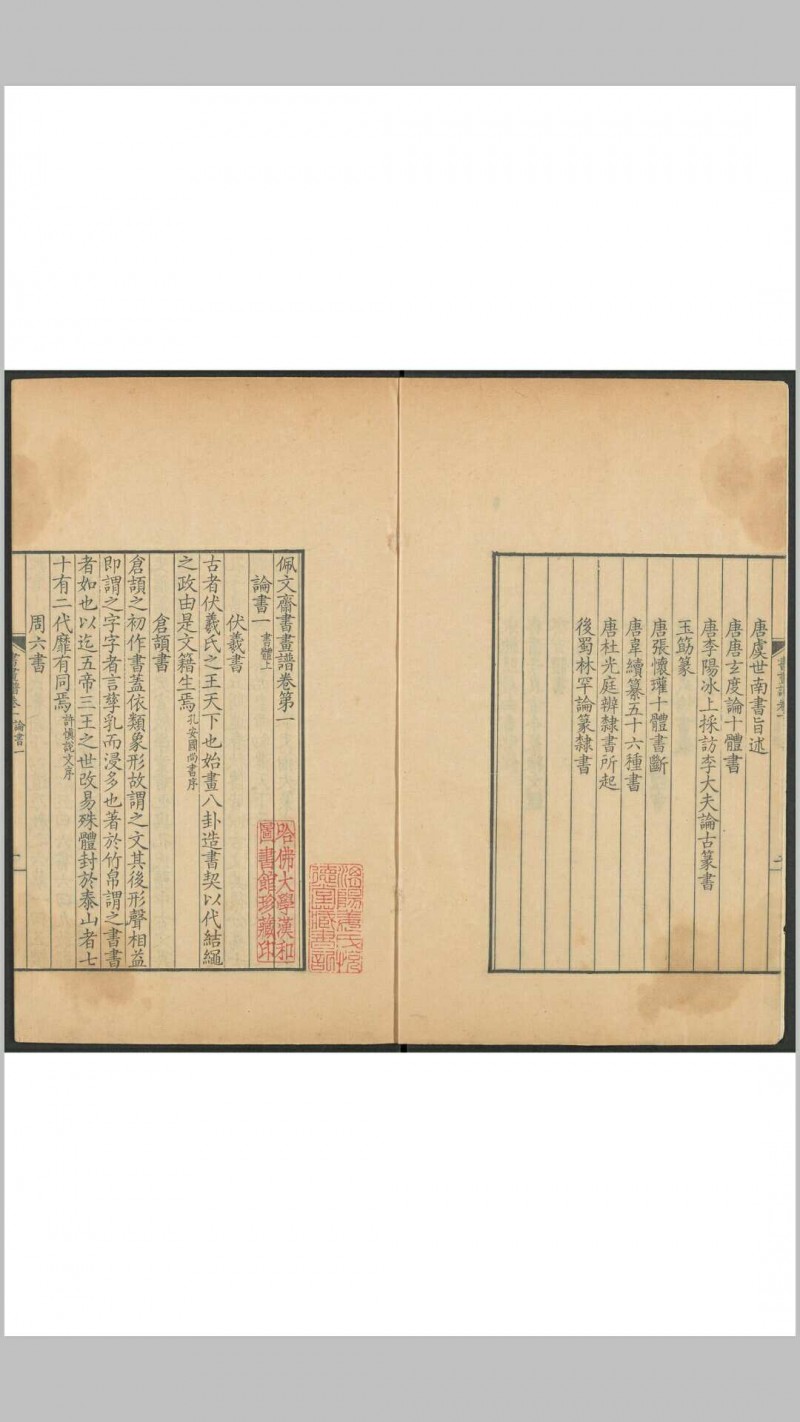 唐虞世南書旨述
唐唐玄度論十體書
唐李陽冰上採訪李大夫論古篆書
玉筯篆
唐張懷瓘十體書斷
唐韋續纂五十六種書
唐杜光庭辨隸書所起
後蜀林罕論篆隸書
佩文齋書畫譜卷第一
論書一 書體上
伏羲書
古者伏羲氏之王天下也始畫八卦造書契以代結繩
之政由是文籍生焉 孔安國尚書序
倉頡書
倉頡之初作書蓋依類象形故謂之文其後形聲相益
即謂之字字者言孳乳而浸多也著於竹帛謂之書書
者如也以迄五帝三王之世改易殊體封於泰山者七
十有二代靡有同焉 許慎說文序
周六書
哈佛大學漢和
圖書館珍藏印
德堂藏書記